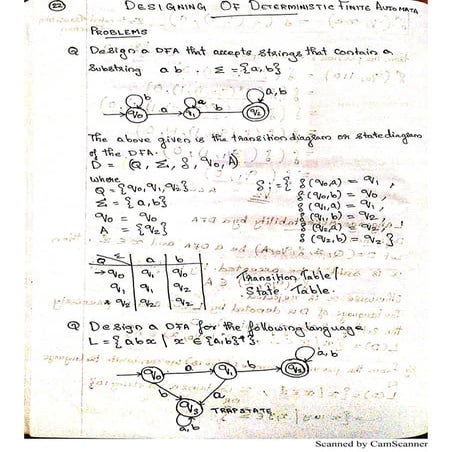 22 DESIGNING OF DETERMINISTIC FINITE AUTOMATA
PROBLEMS
Q Design a DFA that accepts strings that contain a
substring ab Σ = {a, b}
b a a, b
q0 a q1 b q2
The above given is the transition diagram or state diagram
of the DFA.
D = (Q, Σ, δ, q0, A)
where
Q = {q0, q1, q2} δ : { δ(q0, a) = q1,
Σ = {a, b} δ(q0, b) = q0,
q0 = q0 δ(q1, a) = q1,
A = {q2} δ(q1, b) = q2,
δ(q2, a) = q2,
δ(q2, b) = q2}
Q Σ a b
→q0 q1 q0
q1 q1 q2
* q2 q2 q2
Transition Table/
State Table.
Q Design a DFA for the following language
L = {abx | x ∈ {a,b}*}
a, b
q0 a q1 b q3
b a
q3 TRAP STATE
a, b
Scanned by CamScanner